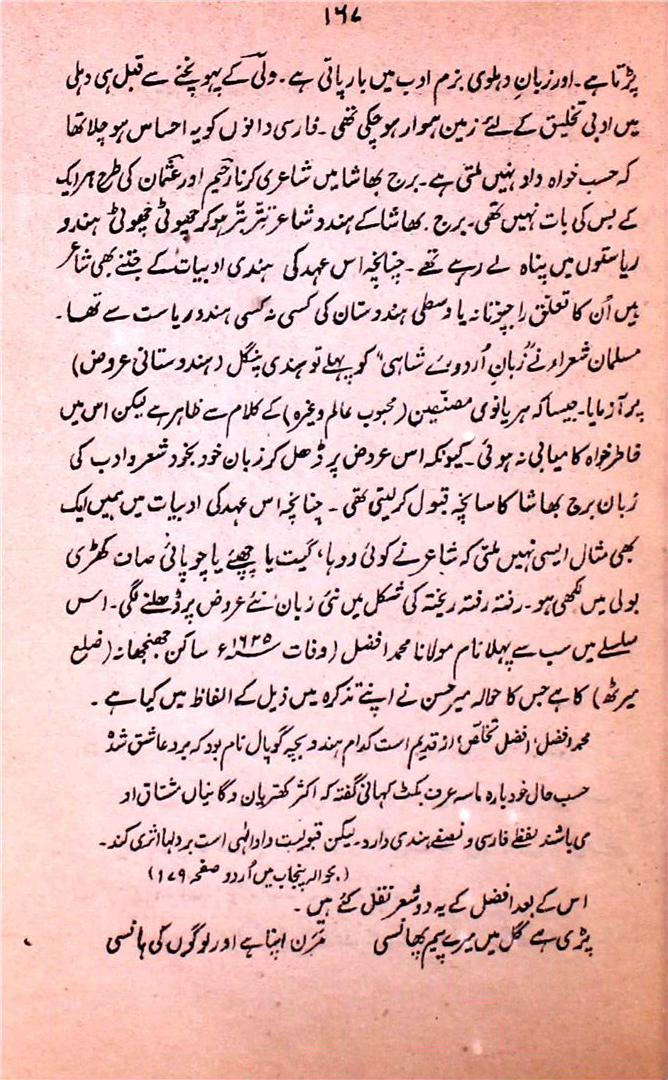 ۱۶۷
پڑتا ہے۔ اور زبانِ دہلوی بزم ادب میں بار پاتی ہے۔ ولیؔ کے پہونچنے سے قبل ہی دہلی
میں ادبی تخلیق کے لئے زمین ہموار ہو چکی تھی۔ فارسی دانوں کو یہ احساس ہو چلا تھا
کہ حسب خواہ داد نہیں ملتی ہے۔ برج بھاشا میں شاعری کرنا رحیمؔ اور عثمانؔ کی طرح ہر ایک
کے بس کی بات نہیں تھی۔ برج بھاشا کے ہندو شاعر تِتّر بِتّر ہو کر چھوٹی چھوٹی ہندو
ریاستوں میں پناہ لے رہے تھے۔ چنانچہ اس عہد کی ہندی ادبیات کے جتنے بھی شاعر
ہیں اُن کا تعلق راجپوتانہ یا وسطی ہندوستان کی کسی نہ کسی ہندو ریاست سے تھا۔
مسلمان شعراء نے "زبانِ اُردوئے شاہی" کو پہلے تو ہندی پنگل (ہندوستانی عروض)
پر آزمایا۔ جیسا کہ ہریانوی مصنّفین (محبوب عالم وغیرہ) کے کلام سے ظاہر ہے لیکن اس میں
خاطر خواہ کامیابی نہ ہوئی۔ کیونکہ اس عروض پر ڈھل کر زبان خود بخود شعر و ادب کی
زبان برج بھاشا کا سانچہ قبول کر لیتی تھی۔ چنانچہ اس عہد کی ادبیات میں ہمیں ایک
بھی مثال ایسی نہیں ملتی کہ شاعر نے کوئی دوہا، گیت یا چھپئے یا چوپائی صاف کھڑی
بولی میں لکھی ہو۔ رفتہ رفتہ ریختہ کی شکل میں نئی زبان نئے عروض پر ڈھلنے لگی۔ اس
سلسلے میں سب سے پہلا نام مولانا محمد افضل (وفات ۱۶۲۵ء ساکن جھنجھانہ (ضلع
میرٹھ) کا ہے جس کا حوالہ میر حسن نے اپنے تذکرہ میں ذیل کے الفاظ میں کیا ہے۔
محمد افضل، افضل تخلص، از قدیم است کدام ہندو بچہ گوپال نام بود کہ برو عاشق شدہ
حسب حال خود بارہ ماسہ عرف بکٹ کہانی گفتہ کہ اکثر کھتریان و گانیاں مشتاق او
می باشند نصفے فارسی و نصفے ہندی دارد۔ لیکن قبولیت داد الٰہی است بر دلہا اثری کند۔
(بحوالہ پنجاب میں اُردو صفحہ ۱۷۹)
اس کے بعد افضل کے یہ دو شعر نقل کئے ہیں۔
پڑی ہے گل میں میرے پیم پھانسی مَرَن اپنا ہے اور لوگوں کی ہانسی